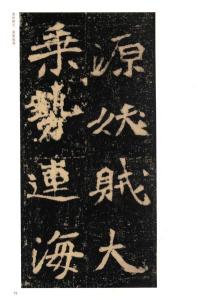 源妖賊大
乘勢連海